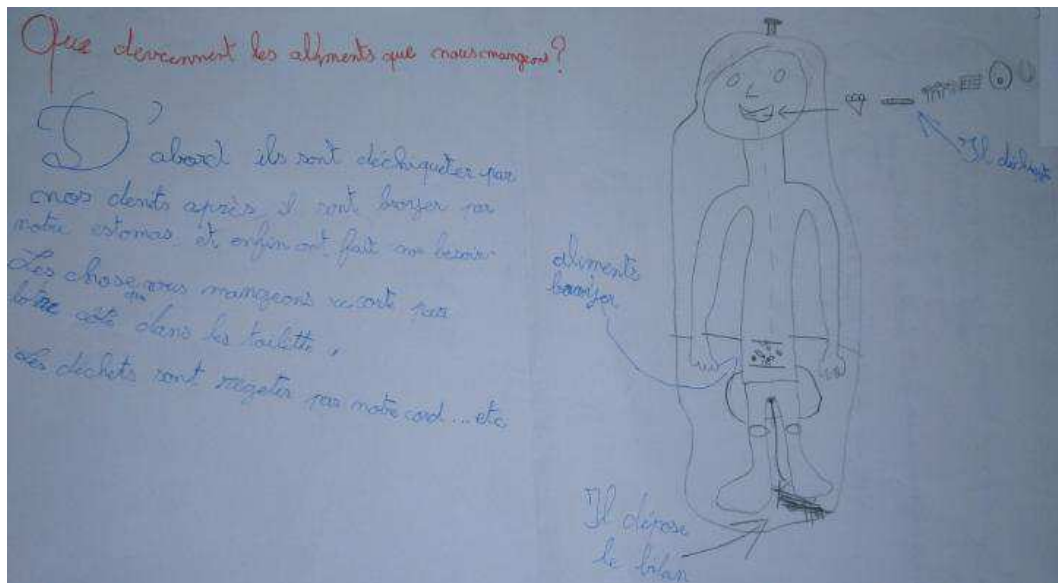 Que deviennent les aliments que nous mangeons?
D'abord ils sont déchiqueter par
nos dents après, il sont broyer par
notre estomas. et enfin ont fait nos besoin.
Les chose que nous mangeons resort par
lotre côté dans les toilette,
Les déchets sont regeter par notre cord...etc
Il déchiqute
aliments
broyer
Il dépose
le bilan